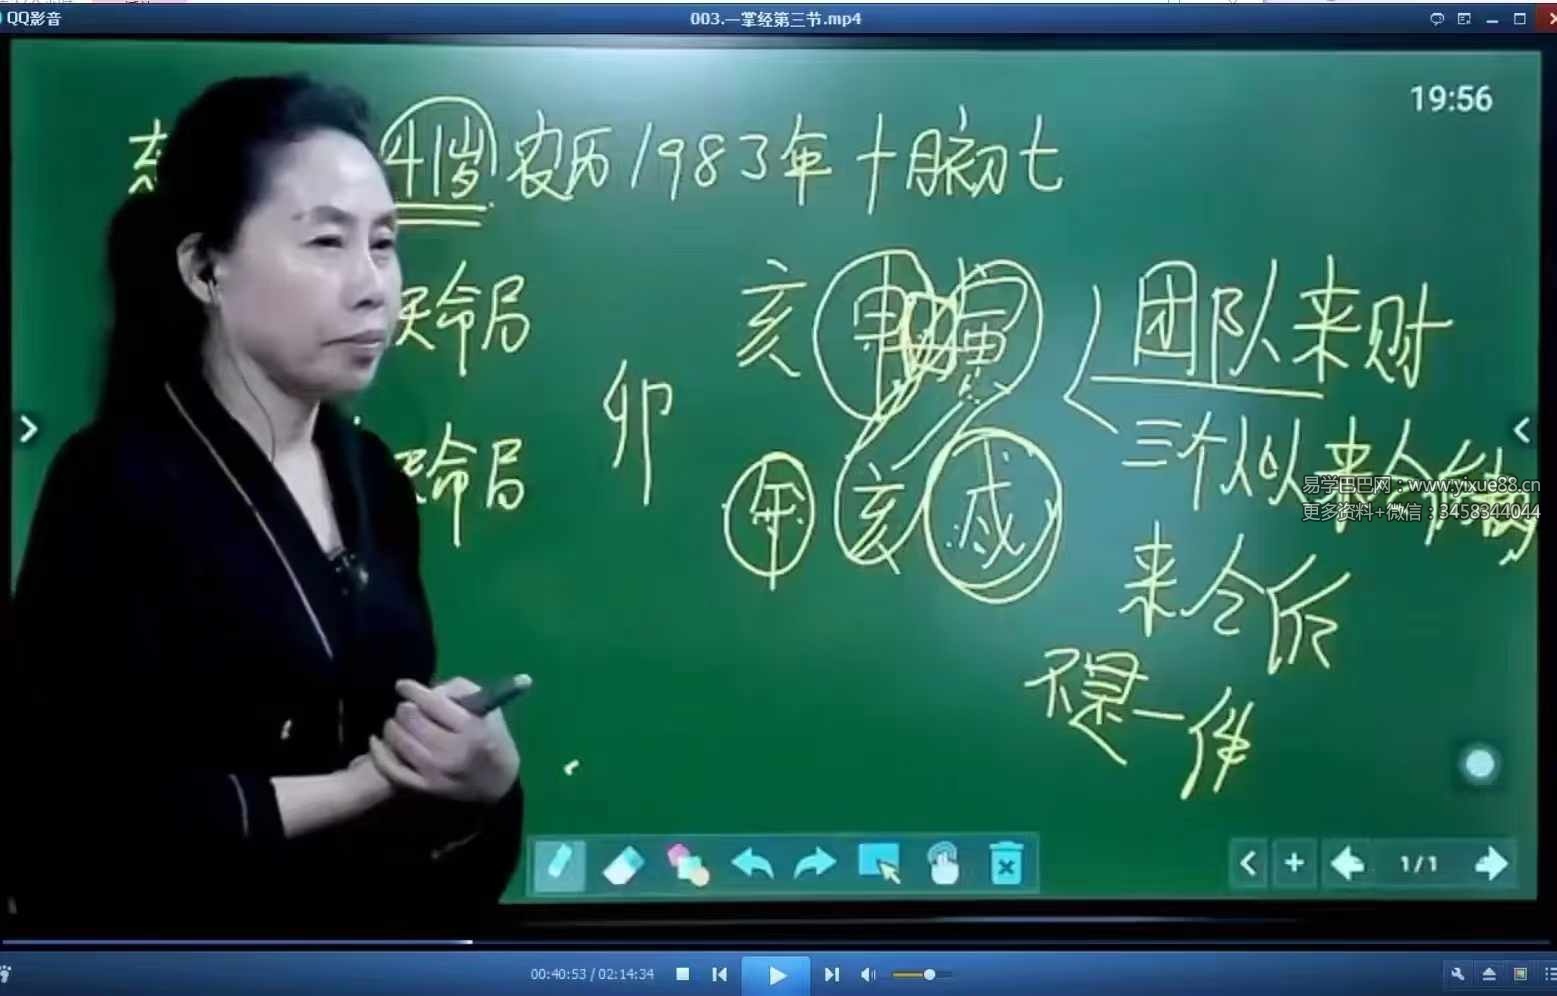 QQ影音
003.一掌经第三节.mp4
19:56
41岁 农历1983年十月初七
天命局
亥 申 寅
团队来财
卯
天命局
午 亥 戌
三个人以来合作
易学巴巴网：www.yixue88.cn
更多资料+微信：3458344044
来合伙
不是一件
1/1
00:40:53 / 02:14:34